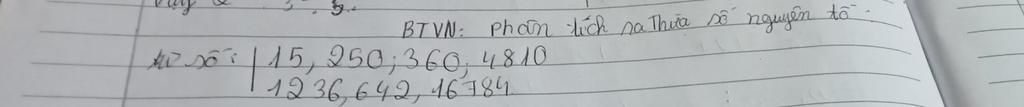 BTVN: Phân tích ra thừa số nguyên tố.
số: 15, 250; 360, 4810
1236, 642, 16784